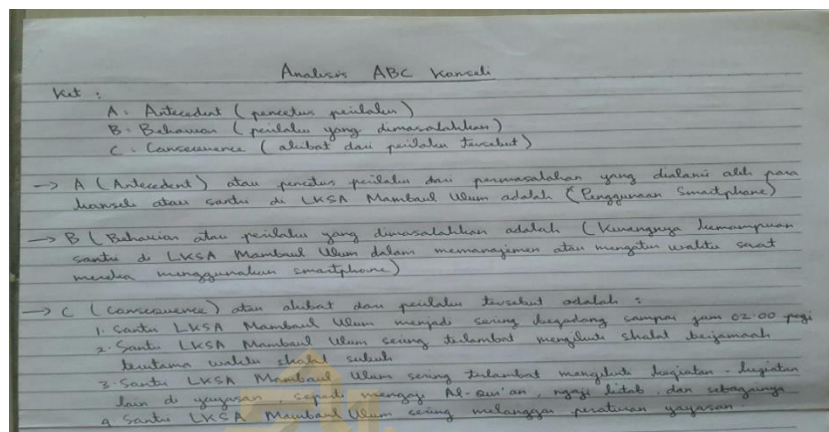 Analisis ABC Konseli
Ket :
A : Antecedent ( pencetus perilaku )
B : Behavior ( perilaku yang dimasalahkan )
C : Consequence ( akibat dari perilaku tersebut )
→ A ( Antecedent ) atau pencetus perilaku dari permasalahan yang dialami oleh para
konseli atau santri di LKSA Mambaul Ulum adalah ( Penggunaan Smartphone )
→ B ( Behavior atau perilaku yang dimasalahkan adalah ( Kurangnya kemampuan
santri di LKSA Mambaul Ulum dalam memanajimen atau mengatur waktu saat
mereka menggunakan smartphone )
→ C ( Consequence ) atau akibat dari perilaku tersebut adalah :
1. Santri LKSA Mambaul Ulum menjadi sering begadang sampai jam 02.00 pagi
2. Santri LKSA Mambaul Ulum sering terlambat mengikuti shalat berjamaah
terutama waktu shalat subuh
3. Santri LKSA Mambaul Ulum sering terlambat mengikuti kegiatan - kegiatan
lain di yayasan, seperti mengaji Al-Qur'an, ngaji kitab, dan sebagainya
4. Santri LKSA Mambaul Ulum sering melanggar peraturan yayasan